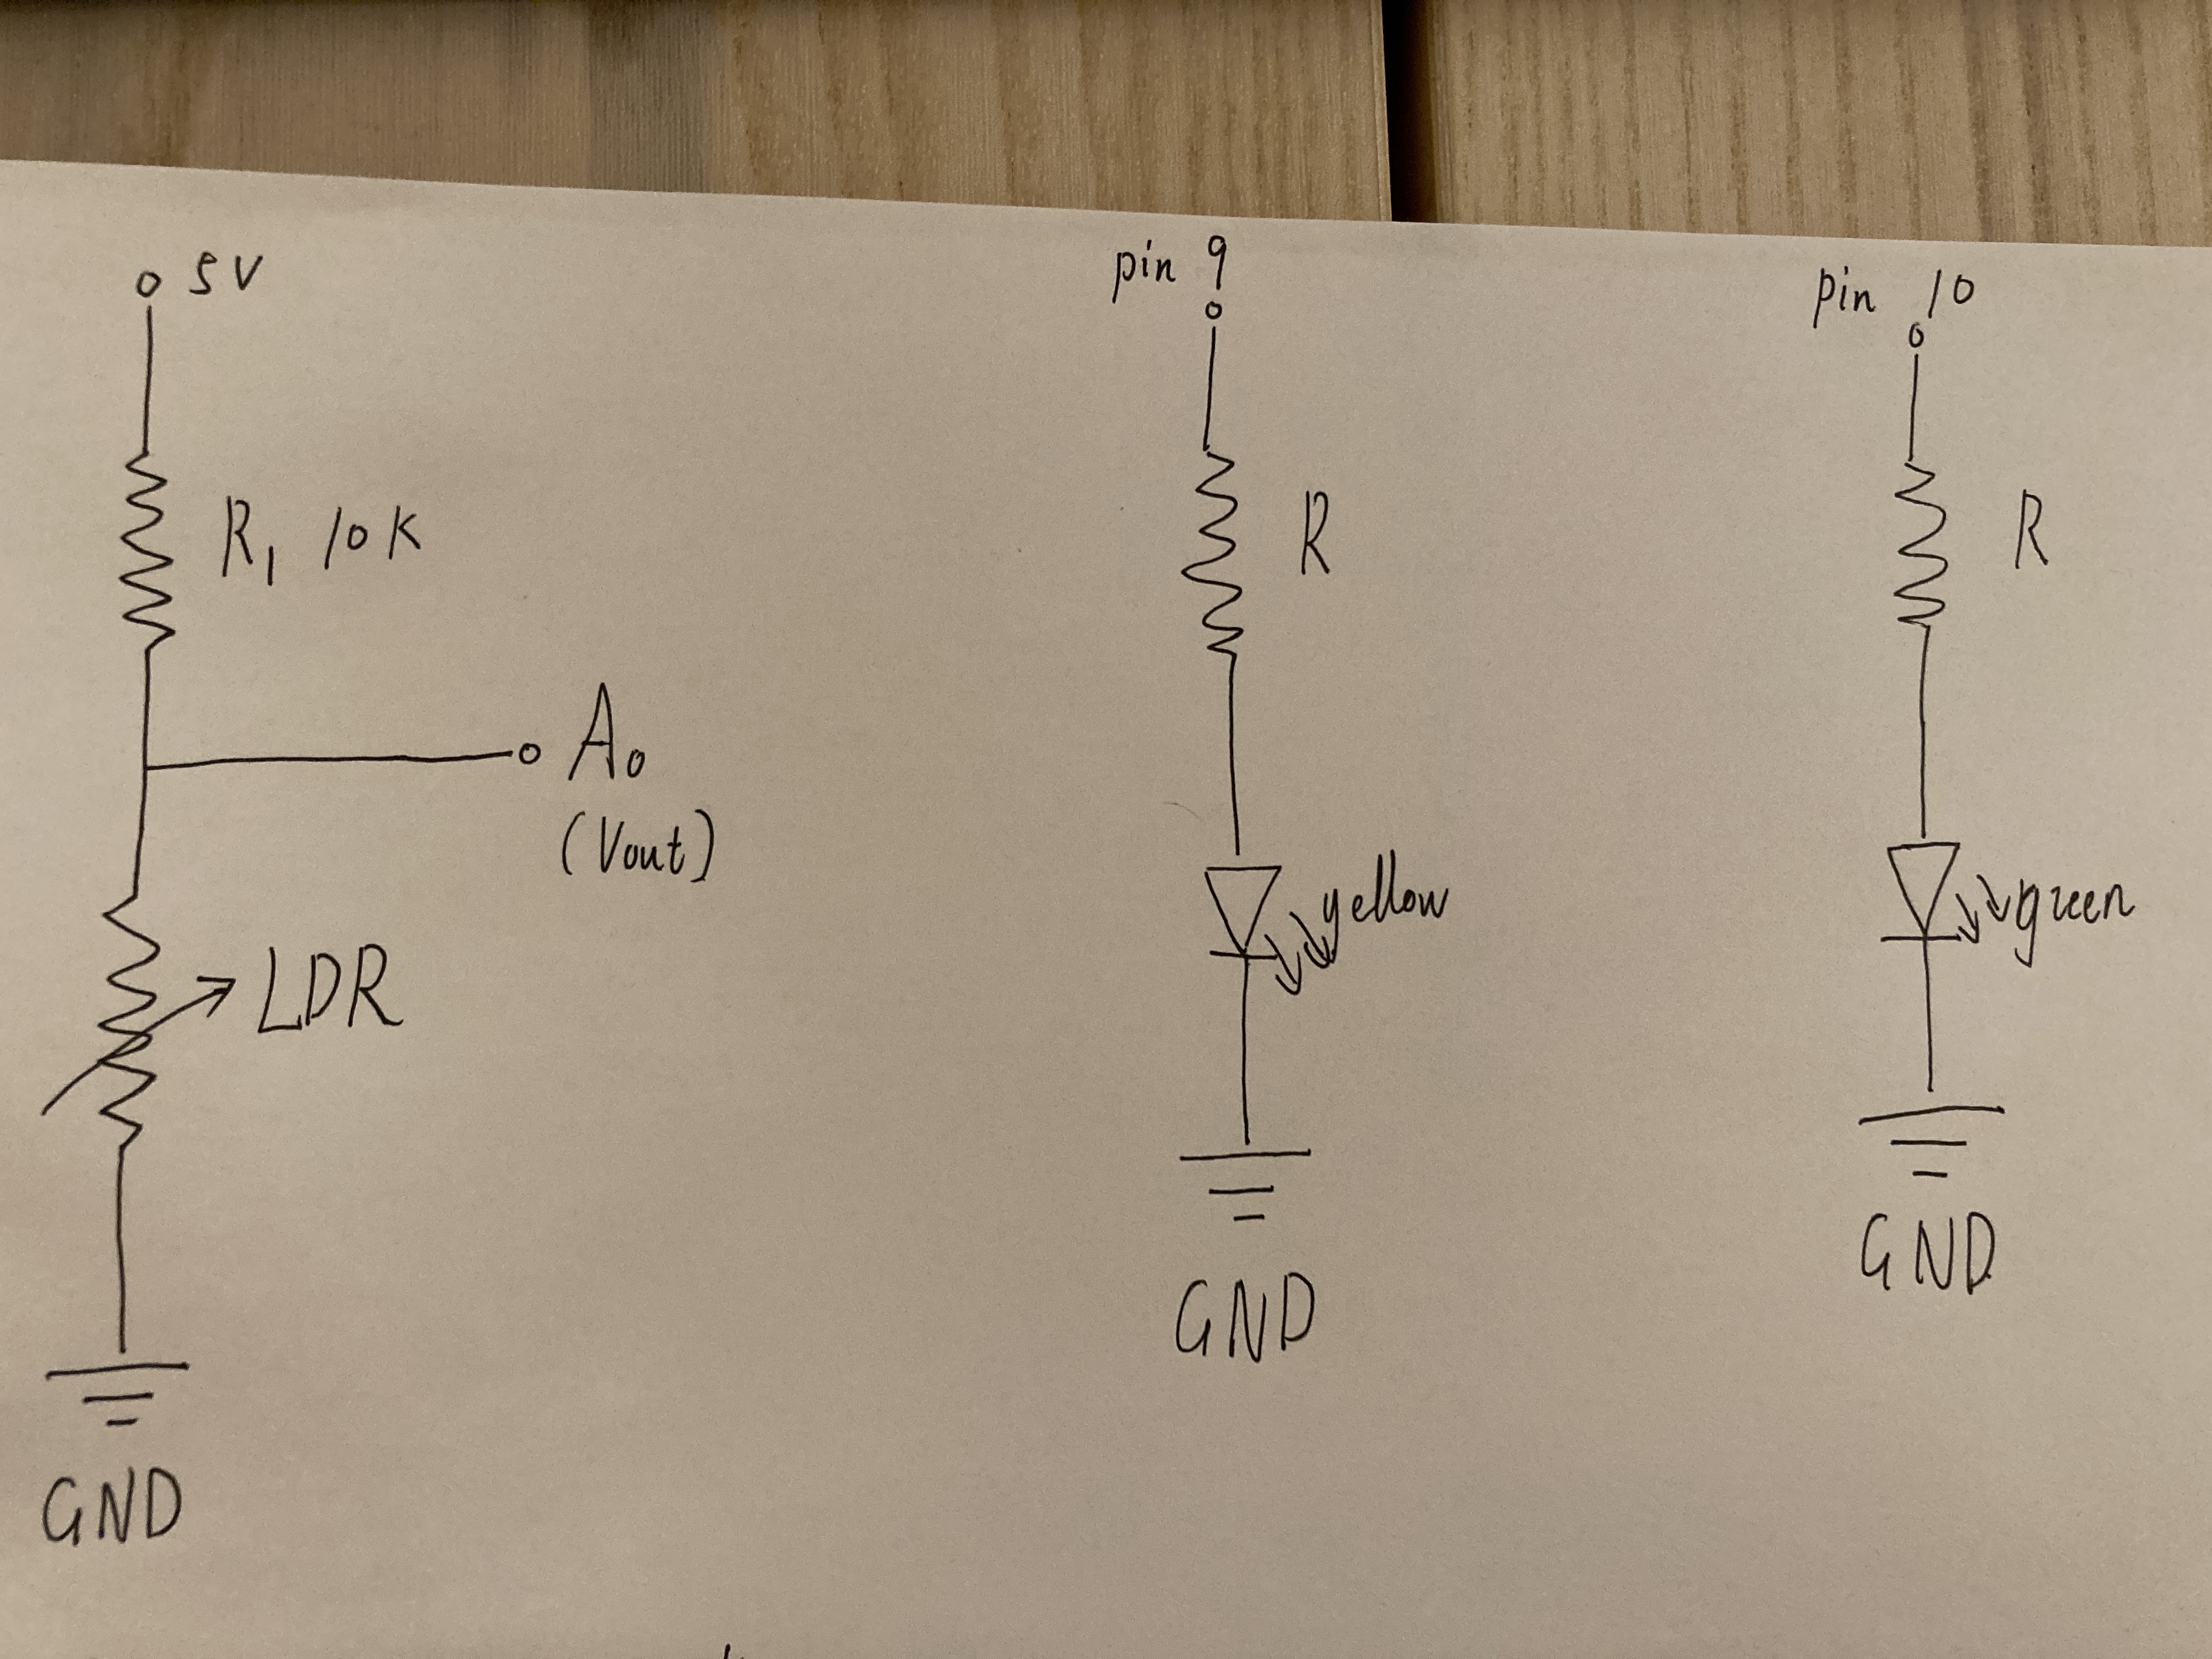 5V
R1 10K
A0
(Vout)
LDR
GND
pin 9
R
yellow
GND
pin 10
R
green
GND